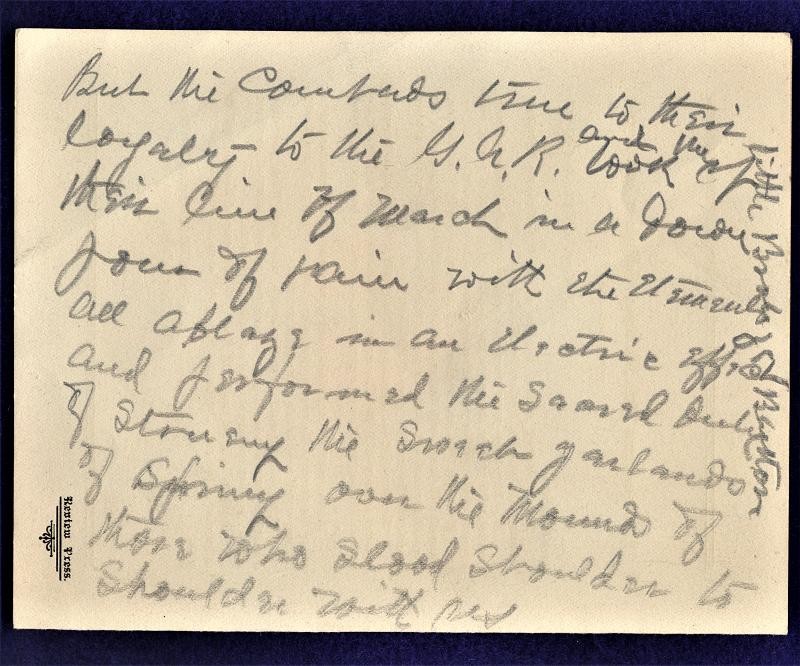 But the Comrads true to their
loyalty to the G.A.R. took up
and the
their line of march in a down
pour of rain with the Elements
all ablaze in an Electric effect
and performed the Sacred Duty
of the Sweet garlands
of Spring over the Mounds of
those who stood Shoulder to
Shoulder with us
little of Buxton
Review Press.